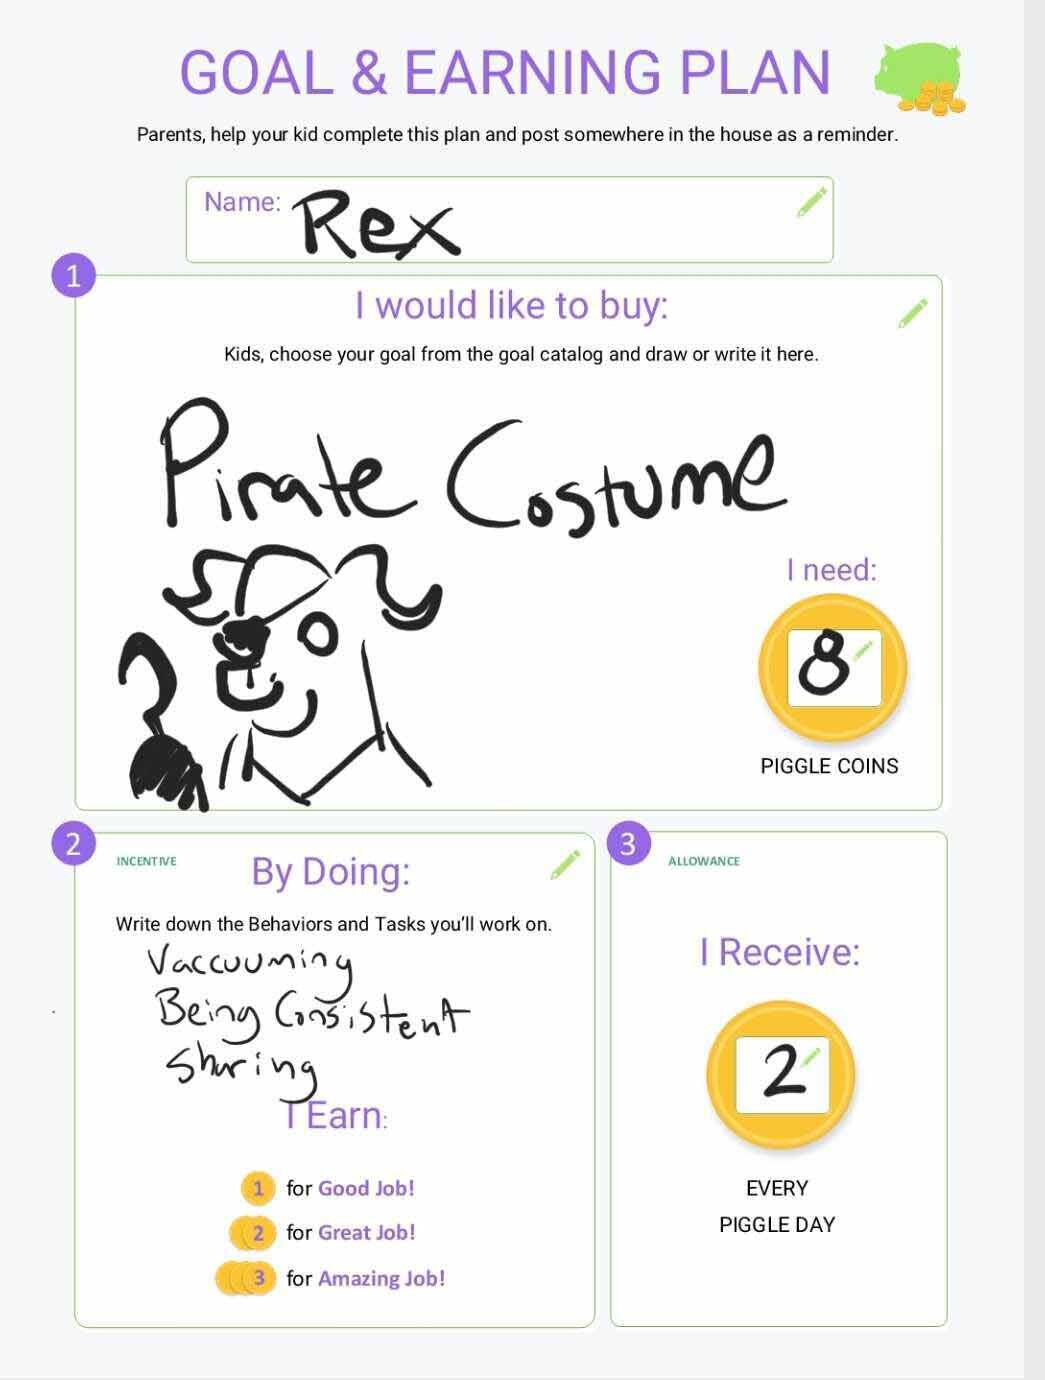 GOAL & EARNING PLAN
Parents, help your kid complete this plan and post somewhere in the house as a reminder.
Name: Rex
1
I would like to buy:
Kids, choose your goal from the goal catalog and draw or write it here.
Pirate Costume
I need:
8
PIGGLE COINS
2
INCENTIVE
By Doing:
Write down the Behaviors and Tasks you'll work on.
Vaccuuming
Being Consistent
Sharing
I Earn:
1 for Good Job!
2 for Great Job!
3 for Amazing Job!
3
ALLOWANCE
I Receive:
2
EVERY
PIGGLE DAY